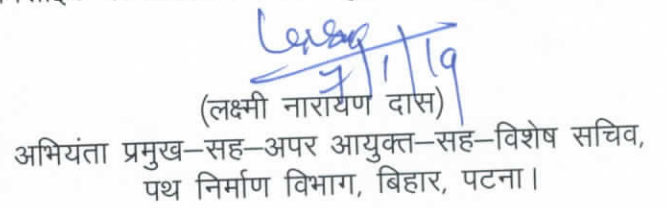 7/1/19
(लक्ष्मी नारायण दास)
अभियंता प्रमुख–सह–अपर आयुक्त–सह–विशेष सचिव,
पथ निर्माण विभाग, बिहार, पटना।